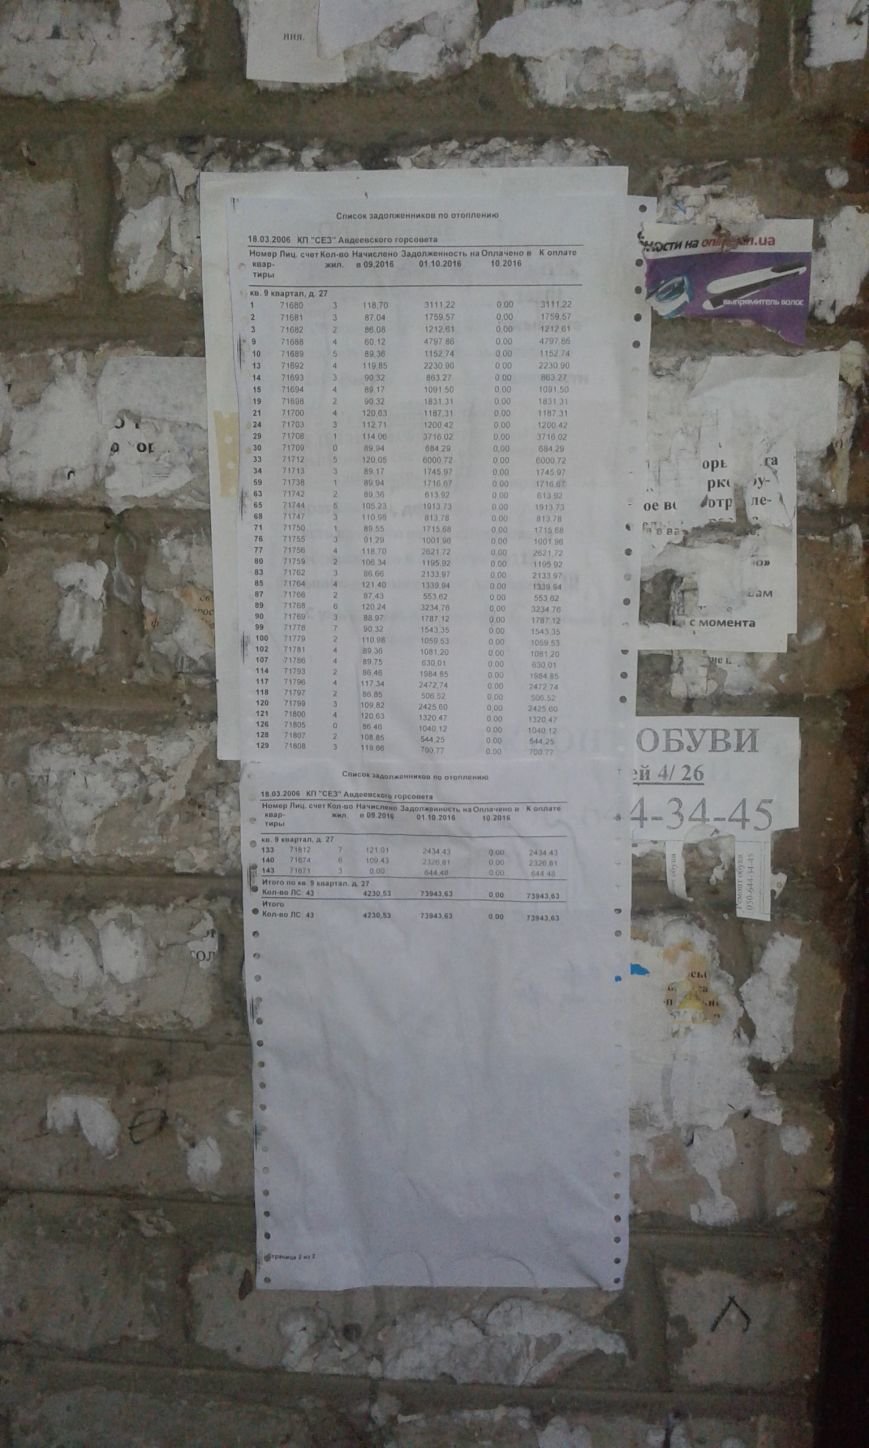 ния.
Список задолженников по отоплению
18.03.2006 КП "СЕЗ" Авдеевского горсовета
Номер Лиц. счет Кол-во Начислено Задолженность на Оплачено в К оплате
квар- жил. в 09.2016 01.10.2016 10.2016
тиры
кв. 9 квартал, д. 27
1 71680 3 118,70 3111,22 0,00 3111,22
2 71681 3 87,04 1759,57 0,00 1759,57
3 71682 2 86,08 1212,61 0,00 1212,61
9 71688 4 60,12 4797,86 0,00 4797,86
10 71689 5 89,36 1152,74 0,00 1152,74
13 71692 4 119,85 2230,90 0,00 2230,90
14 71693 3 90,32 863,27 0,00 863,27
15 71694 4 89,17 1091,50 0,00 1091,50
19 71698 2 90,32 1831,31 0,00 1831,31
21 71700 4 120,63 1187,31 0,00 1187,31
24 71703 3 112,71 1200,42 0,00 1200,42
29 71708 1 114,06 3716,02 0,00 3716,02
30 71709 0 89,94 684,29 0,00 684,29
33 71712 5 120,05 6000,72 0,00 6000,72
34 71713 3 89,17 1745,97 0,00 1745,97
59 71738 1 89,94 1716,67 0,00 1716,67
63 71742 2 89,36 613,92 0,00 613,92
65 71744 105,23 1913,73 0,00 1913,73
68 71747 3 110,98 813,78 0,00 813,78
71 71750 1 89,55 1715,68 0,00 1715,68
76 71755 3 91,29 1001,96 0,00 1001,96
77 71756 4 118,70 2621,72 0,00 2621,72
80 71759 2 106,34 1195,92 0,00 1195,92
83 71762 3 86,66 2133,97 0,00 2133,97
85 71764 4 121,40 1339,94 0,00 1339,94
87 71766 2 87,43 553,62 0,00 553,62
89 71768 6 120,24 3234,76 0,00 3234,76
90 71769 3 88,97 1787,12 0,00 1787,12
99 71778 7 90,32 1543,35 0,00 1543,35
100 71779 2 110,98 1059,53 0,00 1059,53
102 71781 4 89,36 1081,20 0,00 1081,20
107 71786 4 89,75 630,01 0,00 630,01
114 71793 2 86,46 1984,85 0,00 1984,85
117 71796 4 117,34 2472,74 0,00 2472,74
118 71797 2 86,85 506,52 0,00 506,52
120 71799 3 109,82 2425,60 0,00 2425,60
121 71800 4 120,63 1320,47 0,00 1320,47
126 71805 0 86,46 1040,12 0,00 1040,12
128 71807 2 108,85 544,25 0,00 544,25
129 71808 3 119,66 700,77 0,00 700,77
Список задолженников по отоплению
18.03.2006 КП "СЕЗ" Авдеевского горсовета
Номер Лиц. счет Кол-во Начислено Задолженность на Оплачено в К оплате
квар- жил. в 09.2016 01.10.2016 10.2016
тиры
кв. 9 квартал, д. 27
133 71812 7 121,01 2434,43 0,00 2434,43
140 71674 6 109,43 2326,81 0,00 2326,81
143 71671 3 0,00 644,48 0,00 644,48
Итого по кв. 9 квартал, д. 27
Кол-во ЛС 43 4230,53 73943,63 0,00 73943,63
Итого
Кол-во ЛС 43 4230,53 73943,63 0,00 73943,63
Страница 2 из 2
ности на
.ua
выпрямитель волос
с момента
ОБУВИ
ей 4/ 26
4-34-45
Ремонт обуви
050-644-34-45